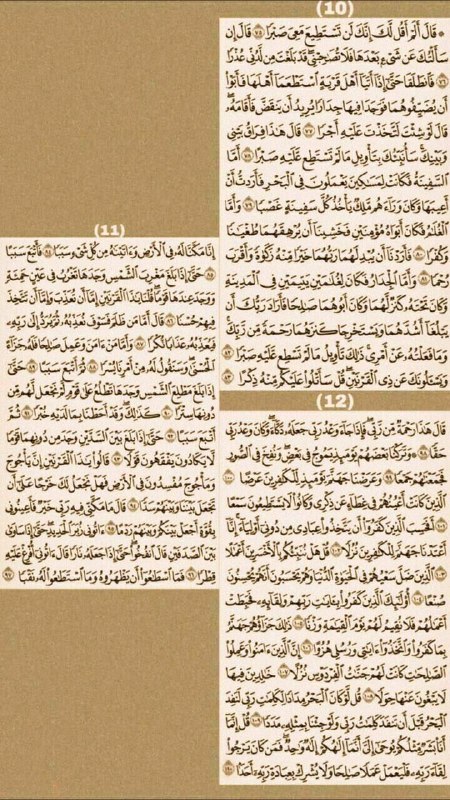 (10)
۞ قَالَ أَلَمْ أَقُل لَّكَ إِنَّكَ لَن تَسْتَطِيعَ مَعِيَ صَبْرًا ٧٥ قَالَ إِن
سَأَلْتُكَ عَن شَيْءٍ بَعْدَهَا فَلَا تُصَٰحِبْنِي قَدْ بَلَغْتَ مِن لَّدُنِّي عُذْرًا
٧٦ فَٱنطَلَقَا حَتَّىٰ إِذَآ أَتَيَآ أَهْلَ قَرْيَةٍ ٱسْتَطْعَمَآ أَهْلَهَا فَأَبَوْا۟
أَن يُضَيِّفُوهُمَا فَوَجَدَا فِيهَا جِدَارًا يُرِيدُ أَن يَنقَضَّ فَأَقَامَهُۥ
قَالَ لَوْ شِئْتَ لَتَّخَذْتَ عَلَيْهِ أَجْرًا ٧٧ قَالَ هَٰذَا فِرَاقُ بَيْنِي
وَبَيْنِكَ سَأُنَبِّئُكَ بِتَأْوِيلِ مَا لَمْ تَسْتَطِع عَّلَيْهِ صَبْرًا ٧٨ أَمَّا
ٱلسَّفِينَةُ فَكَانَتْ لِمَسَٰكِينَ يَعْمَلُونَ فِي ٱلْبَحْرِ فَأَرَدتُّ أَنْ
أَعِيبَهَا وَكَانَ وَرَآءَهُم مَّلِكٌ يَأْخُذُ كُلَّ سَفِينَةٍ غَصْبًا ٧٩ وَأَمَّا
ٱلْغُلَٰمُ فَكَانَ أَبَوَاهُ مُؤْمِنَيْنِ فَخَشِينَآ أَن يُرْهِقَهُمَا طُغْيَٰنًا
وَكُفْرًا ٨٠ فَأَرَدْنَآ أَن يُبْدِلَهُمَا رَبُّهُمَا خَيْرًا مِّنْهُ زَكَوٰةً وَأَقْرَبَ
رُحْمًا ٨١ وَأَمَّا ٱلْجِدَارُ فَكَانَ لِغُلَٰمَيْنِ يَتِيمَيْنِ فِي ٱلْمَدِينَةِ
وَكَانَ تَحْتَهُۥ كَنزٌ لَّهُمَا وَكَانَ أَبُوهُمَا صَٰلِحًا فَأَرَادَ رَبُّكَ أَن
يَبْلُغَآ أَشُدَّهُمَا وَيَسْتَخْرِجَا كَنزَهُمَا رَحْمَةً مِّن رَّبِّكَ
وَمَا فَعَلْتُهُۥ عَنْ أَمْرِي ذَٰلِكَ تَأْوِيلُ مَا لَمْ تَسْطِع عَّلَيْهِ صَبْرًا ٨٢
وَيَسْـَٔلُونَكَ عَن ذِي ٱلْقَرْنَيْنِ قُلْ سَأَتْلُوا۟ عَلَيْكُم مِّنْهُ ذِكْرًا ٨٣
(11)
إِنَّا مَكَّنَّا لَهُۥ فِي ٱلْأَرْضِ وَءَاتَيْنَٰهُ مِن كُلِّ شَيْءٍ سَبَبًا ٨٤ فَأَتْبَعَ سَبَبًا
٨٥ حَتَّىٰٓ إِذَا بَلَغَ مَغْرِبَ ٱلشَّمْسِ وَجَدَهَا تَغْرُبُ فِي عَيْنٍ حَمِئَةٍ
وَوَجَدَ عِندَهَا قَوْمًا قُلْنَا يَٰذَا ٱلْقَرْنَيْنِ إِمَّآ أَن تُعَذِّبَ وَإِمَّآ أَن تَتَّخِذَ
فِيهِمْ حُسْنًا ٨٦ قَالَ أَمَّا مَن ظَلَمَ فَسَوْفَ نُعَذِّبُهُۥ ثُمَّ يُرَدُّ إِلَىٰ رَبِّهِۦ
فَيُعَذِّبُهُۥ عَذَابًا نُّكْرًا ٨٧ وَأَمَّا مَنْ ءَامَنَ وَعَمِلَ صَٰلِحًا فَلَهُۥ جَزَآءً
ٱلْحُسْنَىٰ وَسَنَقُولُ لَهُۥ مِنْ أَمْرِنَا يُسْرًا ٨٨ ثُمَّ أَتْبَعَ سَبَبًا ٨٩ حَتَّىٰٓ
إِذَا بَلَغَ مَطْلِعَ ٱلشَّمْسِ وَجَدَهَا تَطْلُعُ عَلَىٰ قَوْمٍ لَّمْ نَجْعَل لَّهُم مِّن
دُونِهَا سِتْرًا ٩٠ كَذَٰلِكَ وَقَدْ أَحَطْنَا بِمَا لَدَيْهِ خُبْرًا ٩١ ثُمَّ
أَتْبَعَ سَبَبًا ٩٢ حَتَّىٰٓ إِذَا بَلَغَ بَيْنَ ٱلسَّدَّيْنِ وَجَدَ مِن دُونِهِمَا قَوْمًا
لَّا يَكَادُونَ يَفْقَهُونَ قَوْلًا ٩٣ قَالُوا۟ يَٰذَا ٱلْقَرْنَيْنِ إِنَّ يَأْجُوجَ
وَمَأْجُوجَ مُفْسِدُونَ فِي ٱلْأَرْضِ فَهَلْ نَجْعَلُ لَكَ خَرْجًا عَلَىٰٓ أَن
تَجْعَلَ بَيْنَنَا وَبَيْنَهُمْ سَدًّا ٩٤ قَالَ مَا مَكَّنِّي فِيهِ رَبِّي خَيْرٌ فَأَعِينُونِي
بِقُوَّةٍ أَجْعَلْ بَيْنَكُمْ وَبَيْنَهُمْ رَدْمًا ٩٥ ءَاتُونِي زُبَرَ ٱلْحَدِيدِ حَتَّىٰٓ إِذَا سَاوَىٰ
بَيْنَ ٱلصَّدَفَيْنِ قَالَ ٱنفُخُوا۟ حَتَّىٰٓ إِذَا جَعَلَهُۥ نَارًا قَالَ ءَاتُونِيٓ أُفْرِغْ عَلَيْهِ
قِطْرًا ٩٦ فَمَا ٱسْطَٰعُوٓا۟ أَن يَظْهَرُوهُ وَمَا ٱسْتَطَٰعُوا۟ لَهُۥ نَقْبًا ٩٧
(12)
قَالَ هَٰذَا رَحْمَةٌ مِّن رَّبِّي فَإِذَا جَآءَ وَعْدُ رَبِّي جَعَلَهُۥ دَكَّآءَ وَكَانَ وَعْدُ رَبِّي
حَقًّا ٩٨ ۞ وَتَرَكْنَا بَعْضَهُمْ يَوْمَئِذٍ يَمُوجُ فِي بَعْضٍ وَنُفِخَ فِي ٱلصُّورِ
فَجَمَعْنَٰهُمْ جَمْعًا ٩٩ وَعَرَضْنَا جَهَنَّمَ يَوْمَئِذٍ لِّلْكَٰفِرِينَ عَرْضًا ١٠٠
ٱلَّذِينَ كَانَتْ أَعْيُنُهُمْ فِي غِطَآءٍ عَن ذِكْرِي وَكَانُوا۟ لَا يَسْتَطِيعُونَ سَمْعًا
١٠١ أَفَحَسِبَ ٱلَّذِينَ كَفَرُوٓا۟ أَن يَتَّخِذُوا۟ عِبَادِي مِن دُونِيٓ أَوْلِيَآءَ إِنَّآ
أَعْتَدْنَا جَهَنَّمَ لِلْكَٰفِرِينَ نُزُلًا ١٠٢ قُلْ هَلْ نُنَبِّئُكُم بِٱلْأَخْسَرِينَ أَعْمَٰلًا
١٠٣ ٱلَّذِينَ ضَلَّ سَعْيُهُمْ فِي ٱلْحَيَوٰةِ ٱلدُّنْيَا وَهُمْ يَحْسَبُونَ أَنَّهُمْ يُحْسِنُونَ
صُنْعًا ١٠٤ أُو۟لَٰٓئِكَ ٱلَّذِينَ كَفَرُوا۟ بِـَٔايَٰتِ رَبِّهِمْ وَلِقَآئِهِۦ فَحَبِطَتْ
أَعْمَٰلُهُمْ فَلَا نُقِيمُ لَهُمْ يَوْمَ ٱلْقِيَٰمَةِ وَزْنًا ١٠٥ ذَٰلِكَ جَزَآؤُهُمْ جَهَنَّمُ
بِمَا كَفَرُوا۟ وَٱتَّخَذُوٓا۟ ءَايَٰتِي وَرُسُلِي هُزُوًا ١٠٦ إِنَّ ٱلَّذِينَ ءَامَنُوا۟ وَعَمِلُوا۟
ٱلصَّٰلِحَٰتِ كَانَتْ لَهُمْ جَنَّٰتُ ٱلْفِرْدَوْسِ نُزُلًا ١٠٧ خَٰلِدِينَ فِيهَا
لَا يَبْغُونَ عَنْهَا حِوَلًا ١٠٨ قُل لَّوْ كَانَ ٱلْبَحْرُ مِدَادًا لِّكَلِمَٰتِ رَبِّي لَنَفِدَ
ٱلْبَحْرُ قَبْلَ أَن تَنفَدَ كَلِمَٰتُ رَبِّي وَلَوْ جِئْنَا بِمِثْلِهِۦ مَدَدًا ١٠٩ قُلْ إِنَّمَآ
أَنَا۠ بَشَرٌ مِّثْلُكُمْ يُوحَىٰٓ إِلَيَّ أَنَّمَآ إِلَٰهُكُمْ إِلَٰهٌ وَٰحِدٌ فَمَن كَانَ يَرْجُوا۟
لِقَآءَ رَبِّهِۦ فَلْيَعْمَلْ عَمَلًا صَٰلِحًا وَلَا يُشْرِكْ بِعِبَادَةِ رَبِّهِۦٓ أَحَدًۢا ١١٠